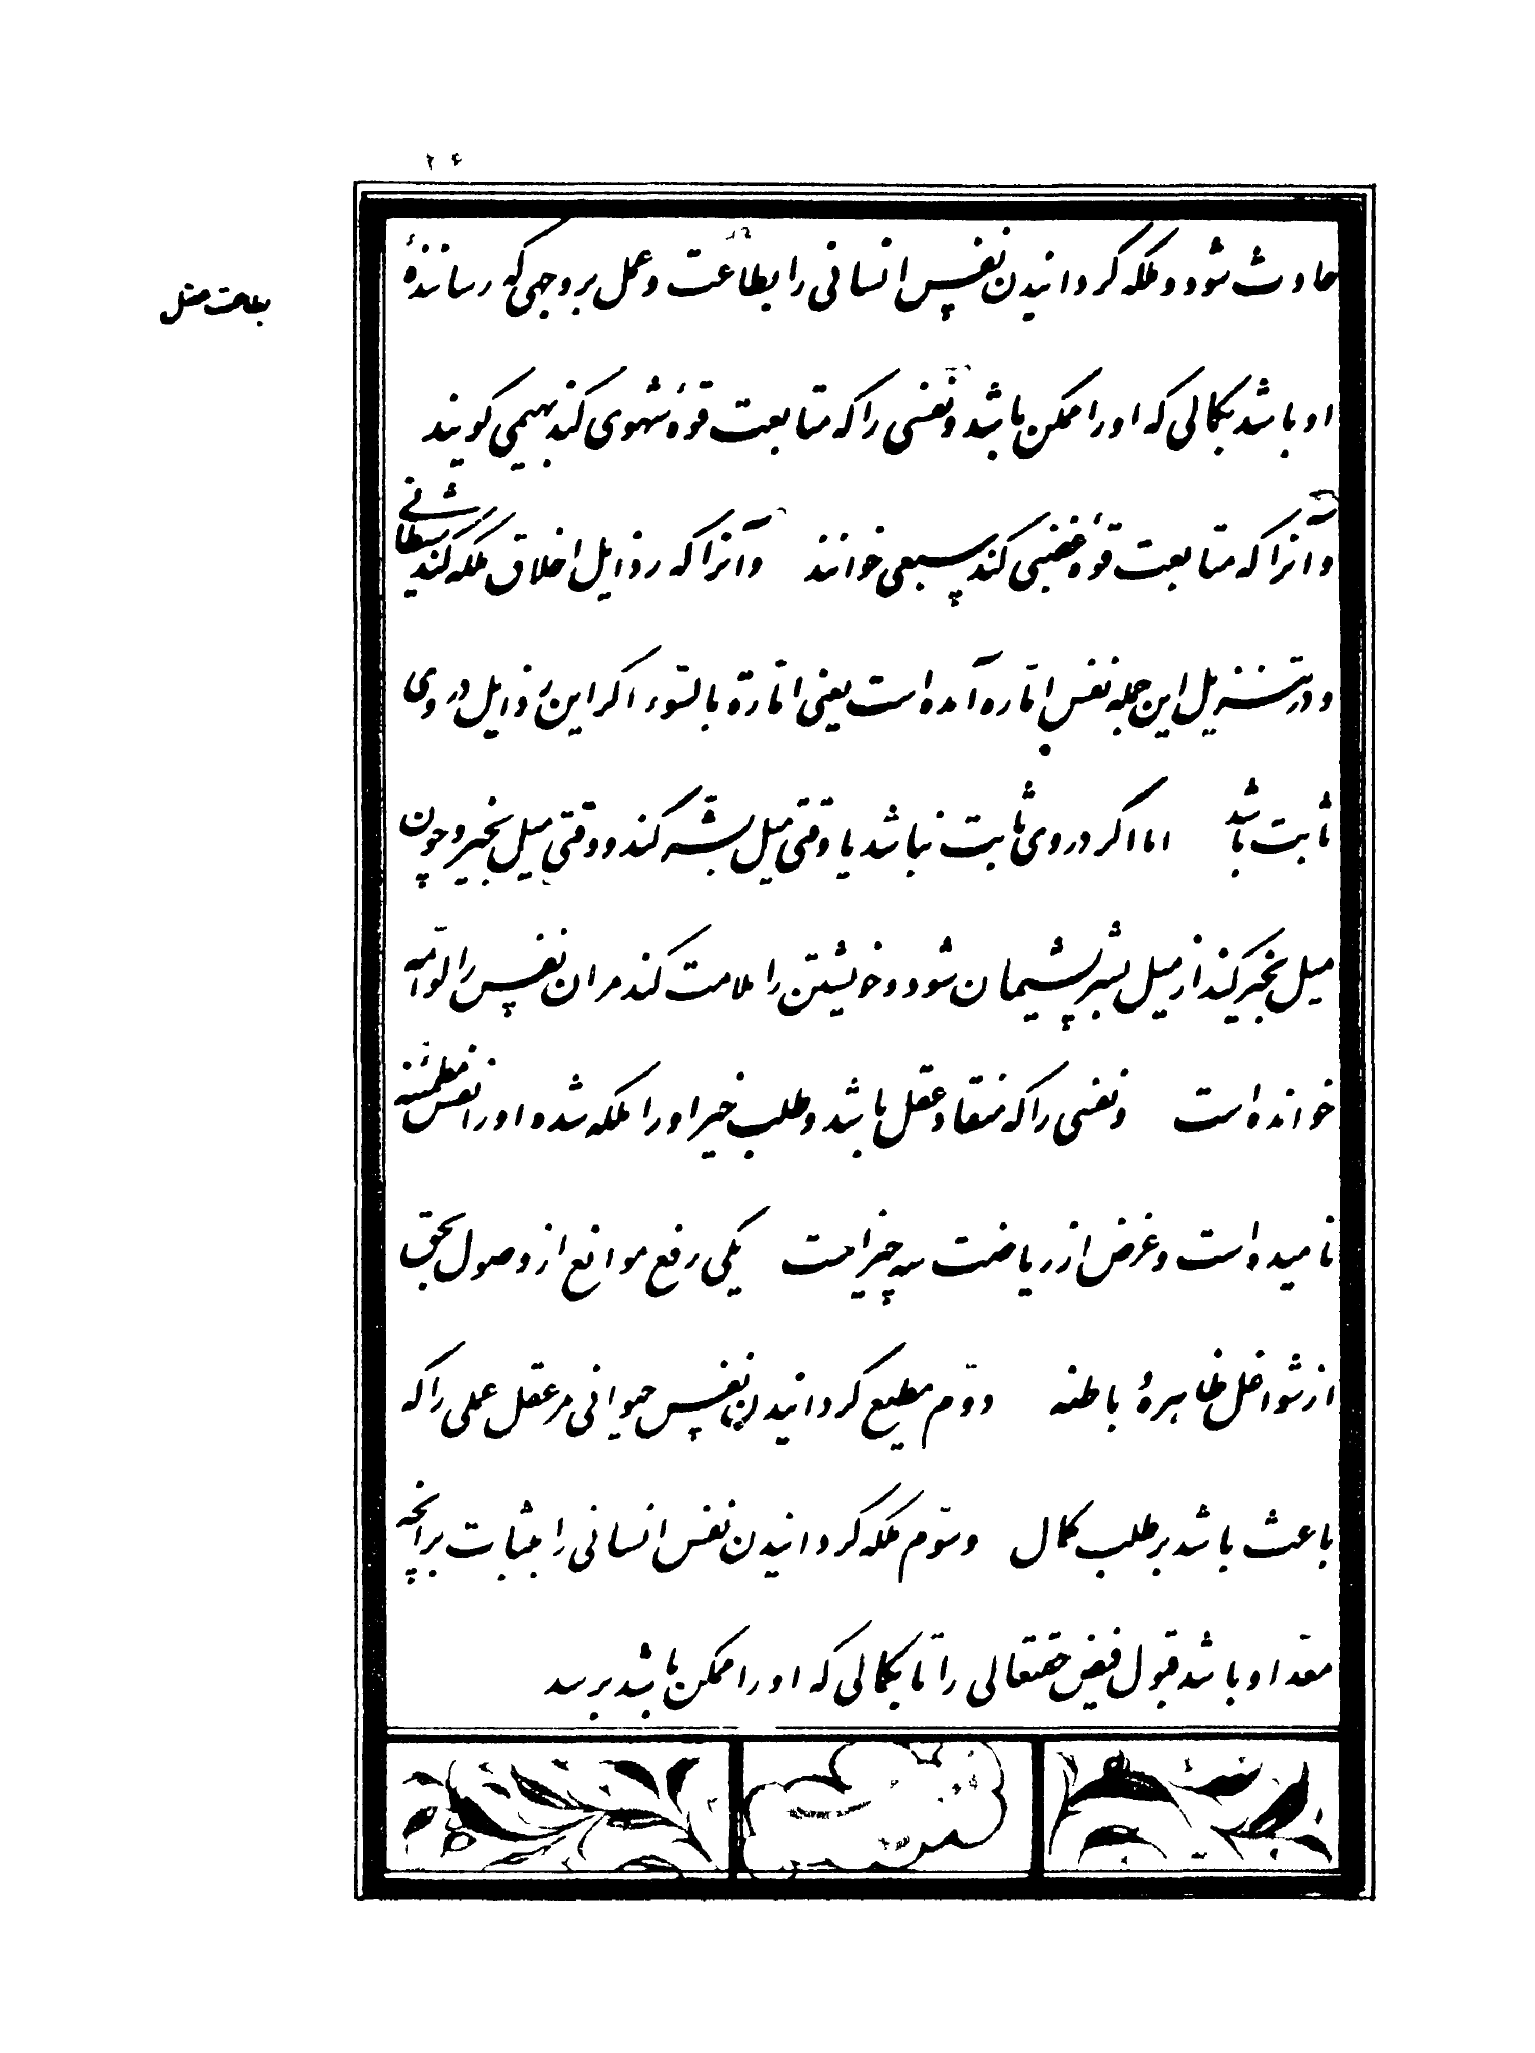 ۴۶
حادث شود و ملکه گردانیدن نفس انسانی را بطاعت و عمل بر وجهی که رسانندهٔ
بطاعت عقل
او باشد بکمالی که او را ممکن باشد و نفسی را که متابعت قوهٔ شهوی کند بهیمی گویند
و آنرا که متابعت قوهٔ غضبی کند سبعی خوانند و آنرا که رذایل اخلاق ملکه کند شیطانی
و در تنزیل این جمله نفس امّاره آمده است یعنی امّارة بالسّوء اگر این رذایل در وی
ثابت باشد اما اگر در وی ثابت نباشد یا وقتی میل بشرّ کند و وقتی میل بخیر و چون
میل بخیر کند از میل بشر پشیمان شود و خویشتن را ملامت کند مر ان نفس را لوّامه
خوانده است و نفسی را که منقاد عقل باشد و طلب خیر او را ملکه شده او را نفس مطمئنه
نامیده است و غرض از ریاضت سه چیز است یکی رفع موانع از وصول بحق
از شواغل ظاهرهٔ باطنه دوّم مطیع گردانیدن نفس حیوانی مر عقل عملی را که
باعث باشد بر طلب کمال و سوّم ملکه گردانیدن نفس انسانی را بثبات بر آنچه
معدّ او باشد قبول فیض حقتعالی را تا بکمالی که او را ممکن باشد برسد